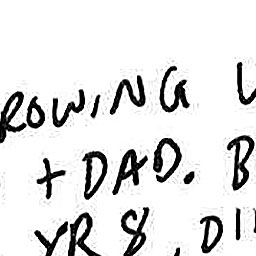 ROWING
+ DAD. B
YR 8, DI